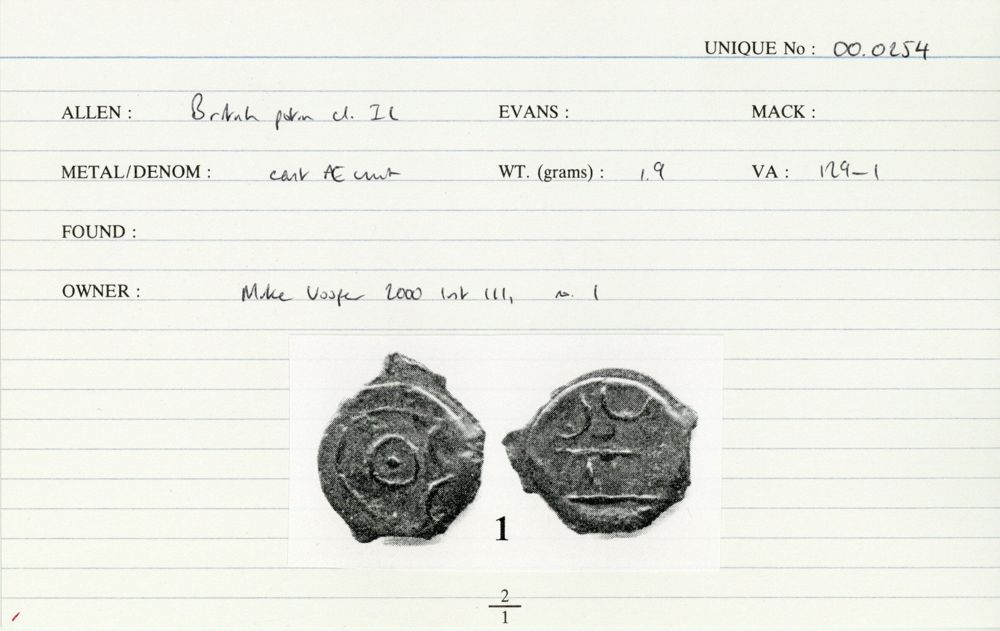 UNIQUE No : 00.0254
ALLEN : British potin cl. IL EVANS : MACK :
METAL/DENOM : cast Æ unit WT. (grams) : 1.9 VA : 129-1
FOUND :
OWNER : Mike Vosper 2000 list 111, no. 1
1
2
1